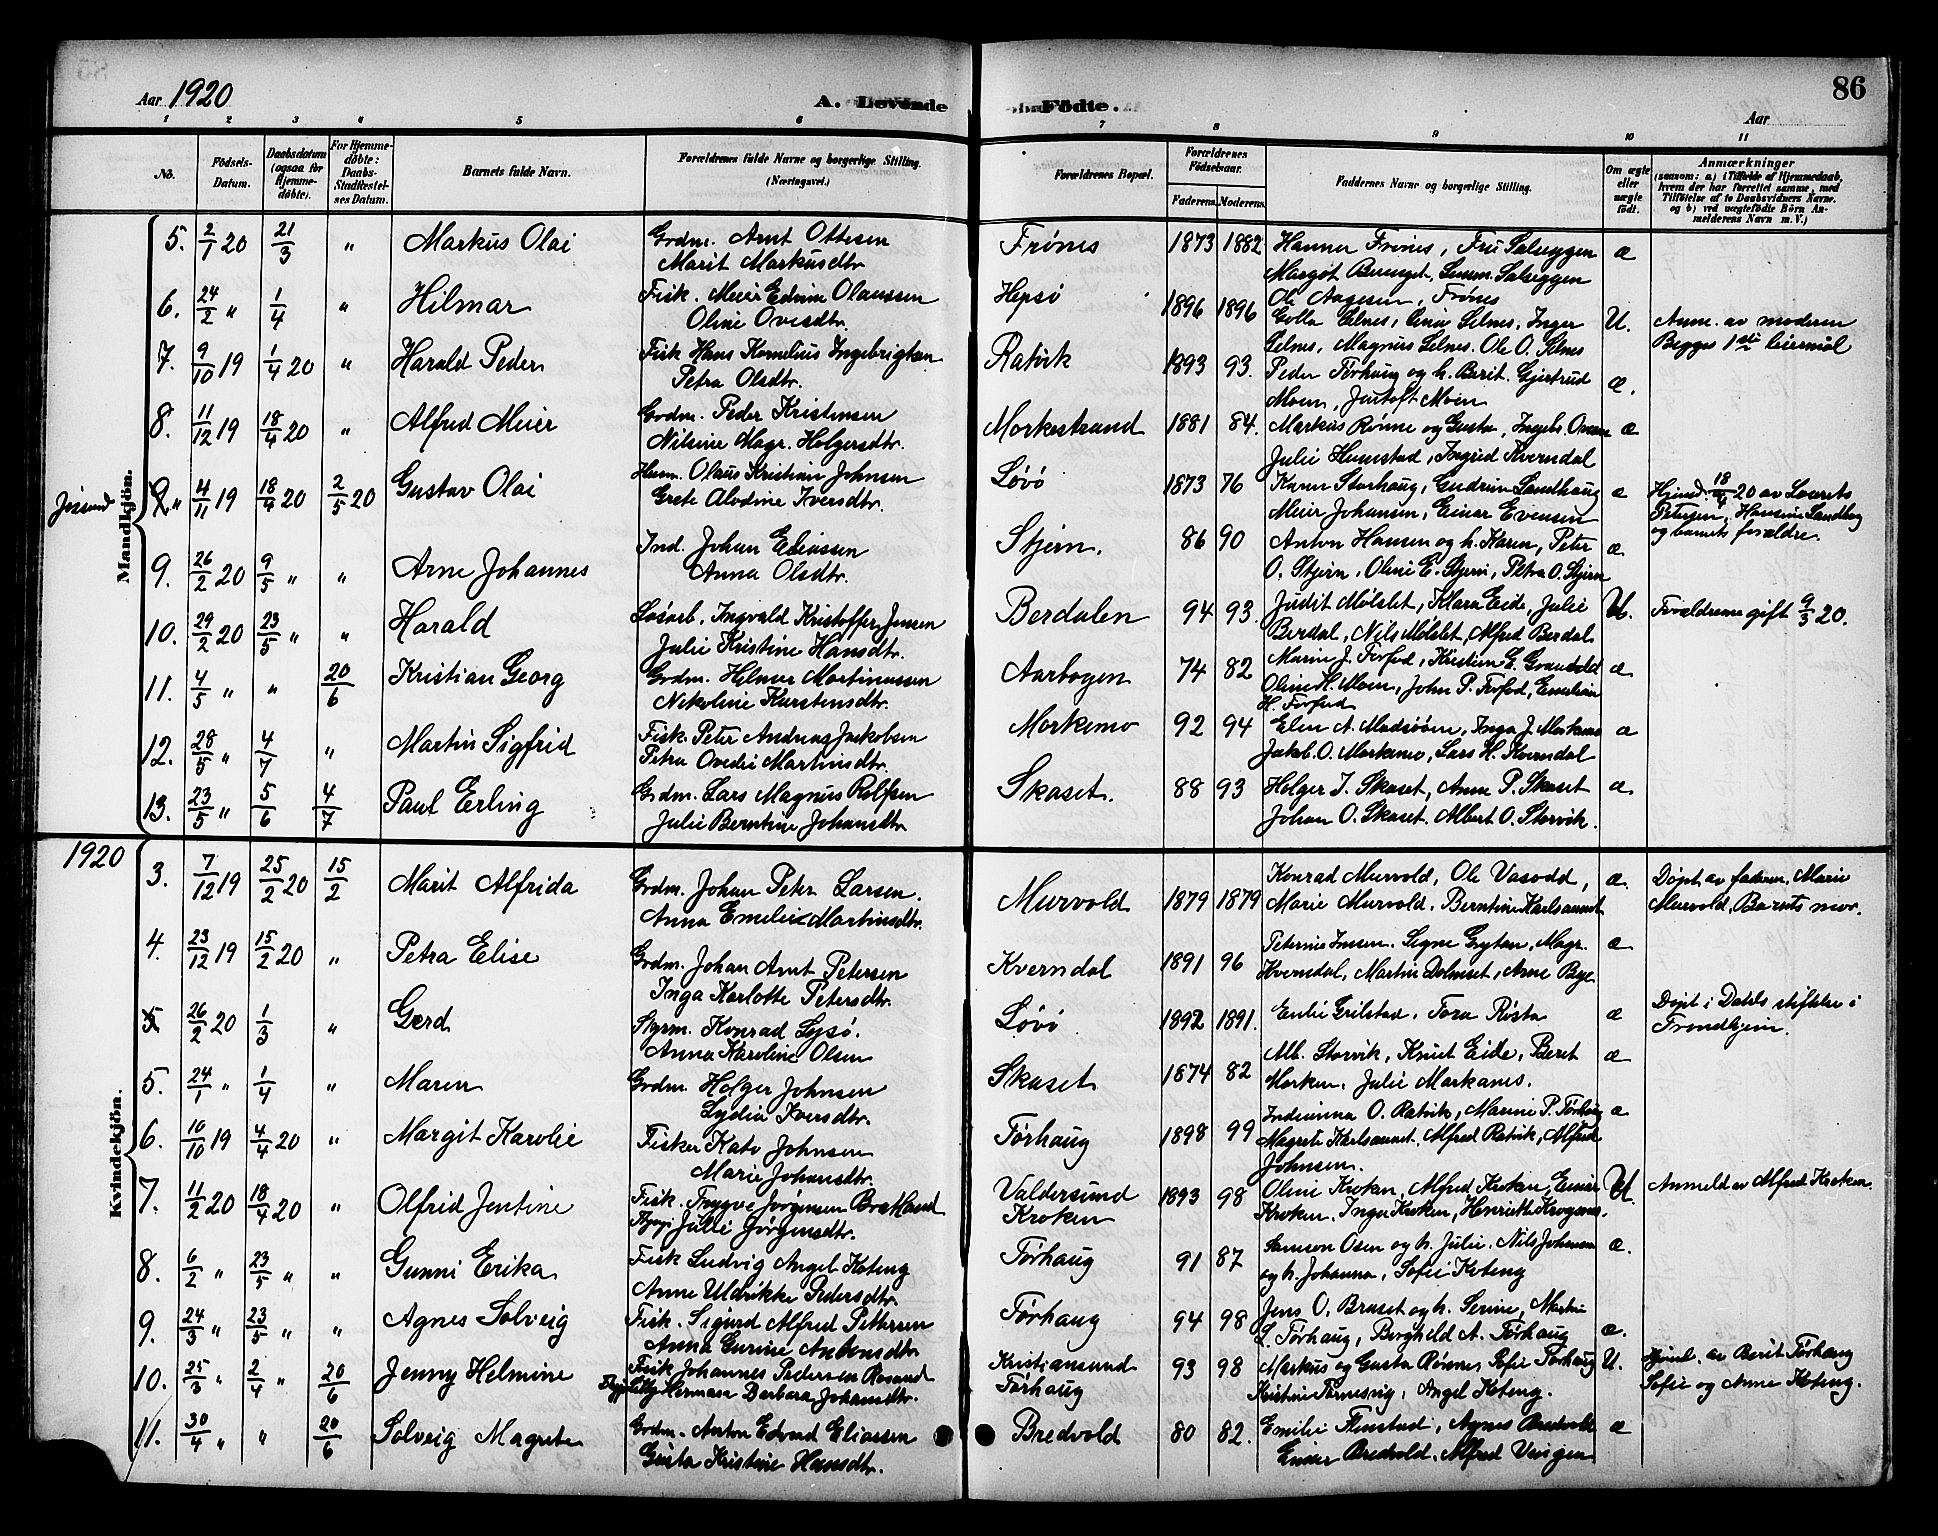 Aar 1920 A. Levende Födte. Aar 86
1 2 3 4 5 6 7 8 9 10 11
No. Födsels-Datum. Daabsdatum (ogsaa for Hjemmedöbte). For Hjemmedöbte: Daabs-Stadfæstelses Datum. Barnets fulde Navn. Forældrenes fulde Navne og borgerlige Stilling. (Næringsvei.) Forældrenes Bopæl. Forældrenes Födselsaar. Faderens. Moderens. Faddernes Navne og borgerlige Stilling. Om ægte eller uægte födt. Anmærkninger (saasom: a) i Tilfælde af Hjemmedaab, hvem der har forrettet samme, med Tilföielse af to Daabsvidners Navne. og b) ved uægtefödte Börn Anmelderens Navn m. V.)
Mandkjön.
5. 2/1 20 21/3 " Markus Olai Grdm. Arnt Ottesen Frønes 1873 1882 Hanner Frønes, Fru Salseggen æ
Marit Markusdtr. Margot
6. 24/2 " 1/4 " Hilmar Fisk. Meier Edvin Olaussen Hepsø 1896 1896 Ole Aagesen, Frønes U. Anm. av moderen
Oline Ovesdtr. Golla Selnes, Selnes, Inger Begges 1ste leiermål
7. 9/10 19 1/4 20 " Harald Peder Fisk Hans Kornelius Ingebrigtsen Ratvik 1893 93. Selnes, Magnus Selnes. Ole O. Selnes æ.
Petra Olsdtr. Peder Tørhaug og h. Berit. Gjertrud
Moen, Justoft Moen
8. 11/12 19 18/4 20 " Alfred Meier Grdm. Peder Kristensen Morkestrand 1881 84. Markus Rønne og Gusta, Ingeb. æ
Nilsine Magr. Holgersdtr. Julie Humstad, Ingrid Kverndal
Jøssund " 4/11 19 18/4 20 2/5 20 Gustav Olai Husm. Olaus Kristian Johnsen Løvø 1873 76 Karen Storhaug, Gudrun Sandhaug æ Hjmd. 18/4 20 av Lourits
Grete Alvdine Iversdtr. Meier Johansen, Einar Evensen Petersen, Hansine Sandberg
og barnets forældre.
9. 26/2 20 9/5 " " Arne Johannes Ind. Johan Eliassen Stjern. 86 90 Anton Hansen og h. Karen, Peter æ
Anna Olsdtr. O. Stjern, Oline E. Stjern, Petra O. Stjern
10. 29/2 20 23/5 " " Harald Løsarb. Ingvald Kristoffer Jensen Berdalen 94 93. Judit Mølslet, Klara Eide, Julie U. Forældrene gift 9/3 20.
Julie Kristine Hansdtr. Berdal, Nils Mølslet, Alfred Berdal
11. 4/5 " " 20/6 Kristian Georg Grdm. Helmer Martinussen Aarbogen 74 82 Marie J. Forfod, Kristian E. æ
Nikoline Karstensdtr. Oline H. Moen, John P. Forfod, Emelius
H. Forfod
12. 28/5 " 4/7 " Martin Sigfrid Fisk. Peter Andreas Jakobsen Morkemo 92 94 Elen A. Madsøren, Inga J. Morkemo æ
Petra Ovedie Martinsdtr. Jakob. O. Morkemo, Lars H. Kverndal
13. 23/5 " 5/6 4/7 Paul Erling Grdm. Lars Magnus Rolfsen Skaset. 88 93 Holger J. Skaset, Anne P. Skaset æ
Julie Berntine Johansdtr. Johan O. Skaset. Albert O. Storvik.
1920
Kvindekjön.
3. 7/12 19 25/2 20 15/2 Marit Alfrida Grdm. Johan Peter Larsen. Murvold 1879 1879 Konrad Murvold, Ole Vasodd, æ. Døpt av faderen. Marie
Anna Emelie Martinsdtr. Marie Murvold, Berntine Karlsaunet Murvold, Barnets mor.
4. 23/12 19 15/2 20 " Petra Elise Grdm. Johan Arnt Petersen Kverndal 1891 96 Peternie Jensen. Signe Grytan, Magr. æ
Inga Karlotte Petersdtr. Kverndal, Martin Dolmset, Arne Bye
5 26/2 20 1/3 " Gerd Styrm. Konrad Lysø. Løvø 1892 1891. Emlie Grilstad, Tora Rista æ Døpt i Dahls stiftelse i
Anna Karoline Olsen Trondhjem.
5. 24/1 " 1/4 " Maren Grdm. Holger Johnsen Skaset 1874 82 Alb. Storvik, Knut Eide, Beret æ
Lydia Iversdtr. Morken, Julie Markanes.
6. 10/10 19 4/4 20 " Margit Karolie Fisker Kato Johnsen Tørhaug 1898 99 Indianna O. Ratvik, Marine P. Tørhaug æ
Marie Johansdtr. Magrete Karlsaunet. Alfred Ratvik, Alfred
Johnsen.
7. 11/2 20 18/4 20 " Olfrid Jentine Fisk. Trygve Jørgensen Brekland Valdersund 1893 98 Oline Kroken, Alfred Kroken, Einar U. Anmeld av Alfred Kroken.
Julie Jørgensdtr. Kroken Kroken, Inga Kroken, Henriette Krogenes.
8. 6/2 " 23/5 " " Gunni Erika Fisk Ludvig Angel Koteng Tørhaug 91 87 Samson Osen og h. Julie. Nils Johansen æ.
Anne Uldrikke Pedersdtr. og h. Johanna, Sofie Koteng
9. 24/3 " 23/5 " " Agnes Solveig Fisk. Sigurd Alfred Pettersen Tørhaug 94 98 Jens O. Braset og h. Serine, Martin æ.
Anna Gurine Antonsdtr. L. Tørhaug, Berghild A. Tørhaug
10. 25/3 " 2/4 " 20/6 Jenny Helmine Fisk Johannes Pedersen Rosand Kristiansund 93 98 Markus og Gusta Rønne, Sofie Tørhaug U. Hjmd. av Berit Tørhaug
Hermana Barbara Johansdtr. Tørhaug Kristine Tarnesvig, Angel Koteng. Sofie og Anne Koteng.
11. 30/4 " " 20/6 Solveig Magrete Grdm. Anton Edvard Eliassen Bredvold 80 82. Emilie Flenstad, Agnes Bredvold æ
Gusta Kristine Hansdtr. Einar Bredvold, Alfred Vingen